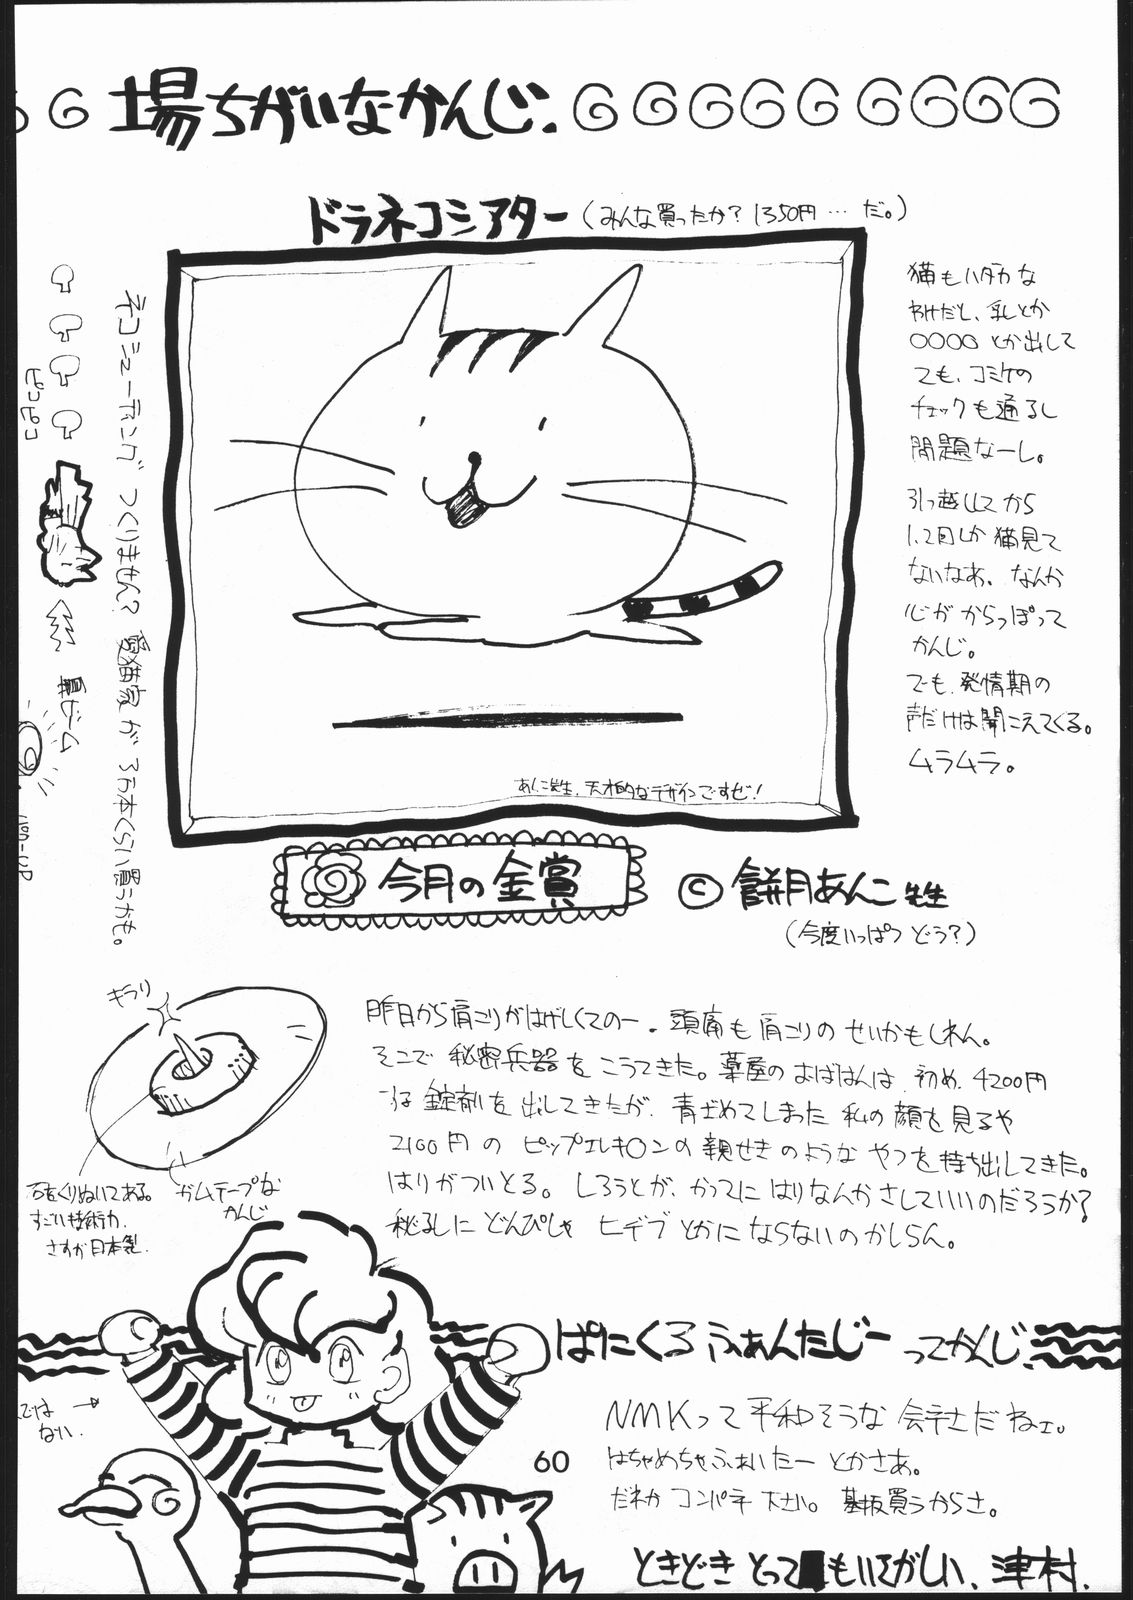 場ちがいなかんじ.
ドラネコシアター(みんな買ったか?1350円…だ。)
猫もハダカな
わけだし、乳とか
○○○○とか出して
ても、コミケの
チェックも通るし
問題なーし。
引っ越してから
しか猫見て
ないなあ。なんか
心がからっぽって
かんじ。
でも、発情期の
声だけは聞こえてくる。
ムラムラ。
ネコシューティングつくりません?愛猫家が3万本くらい買うかも。
ピコピコ
ゲーム
あんこ先生、天才的なデザインですぜ!
今月の金賞
©餅月あんこ先生
(今度いっぱつどう?)
キラリ
昨日から肩こりがはげしくてのー.頭痛も肩こりのせいかもしれん。
そこで秘密兵器をこうてきた。薬屋のおばはんは、初め、4200円
の錠剤を出してきたが、青ざめてしまった私の顔を見るや
2100円のピップエレキ○ンの親せきのようなやつを持ち出してきた。
はりがついとる。しろうとが、かってにはりなんかさしていいのだろうか?
秘孔にどんぴしゃヒデブとかにならないのかしらん。
石をくりぬいてある。
すごい技術力.
さすが日本製.
ガムテープな
かんじ
ぱにくるふぁんたじーってかんじ.
ではない.
NMKって平和そうな会社だねェ。
はちゃめちゃふぁいたーとかさあ。
だれかコンパネ下さい。基板買うからさ。
60
ときどきとってもいてがしい、津村.